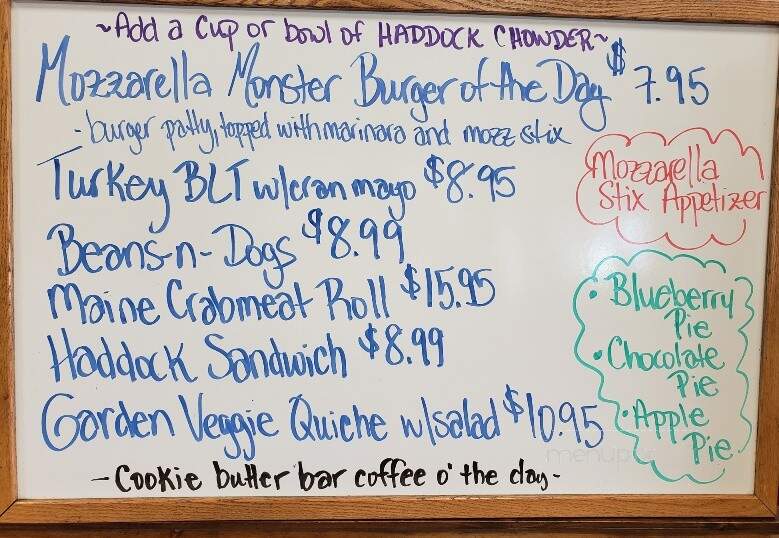 ~Add a cup or bowl of HADDOCK CHOWDER~
Mozzarella Monster Burger of the Day $7.95
- burger patty, topped with marinara and mozz stix
Turkey BLT w/cran mayo $8.95
Beans-n-Dogs $8.99
Maine Crabmeat Roll $15.95
Haddock Sandwich $8.99
Garden Veggie Quiche w/salad $10.95
- Cookie butter bar coffee o' the day -
Mozzarella
Stix Appetizer
• Blueberry
Pie
• Chocolate
Pie
• Apple
Pie